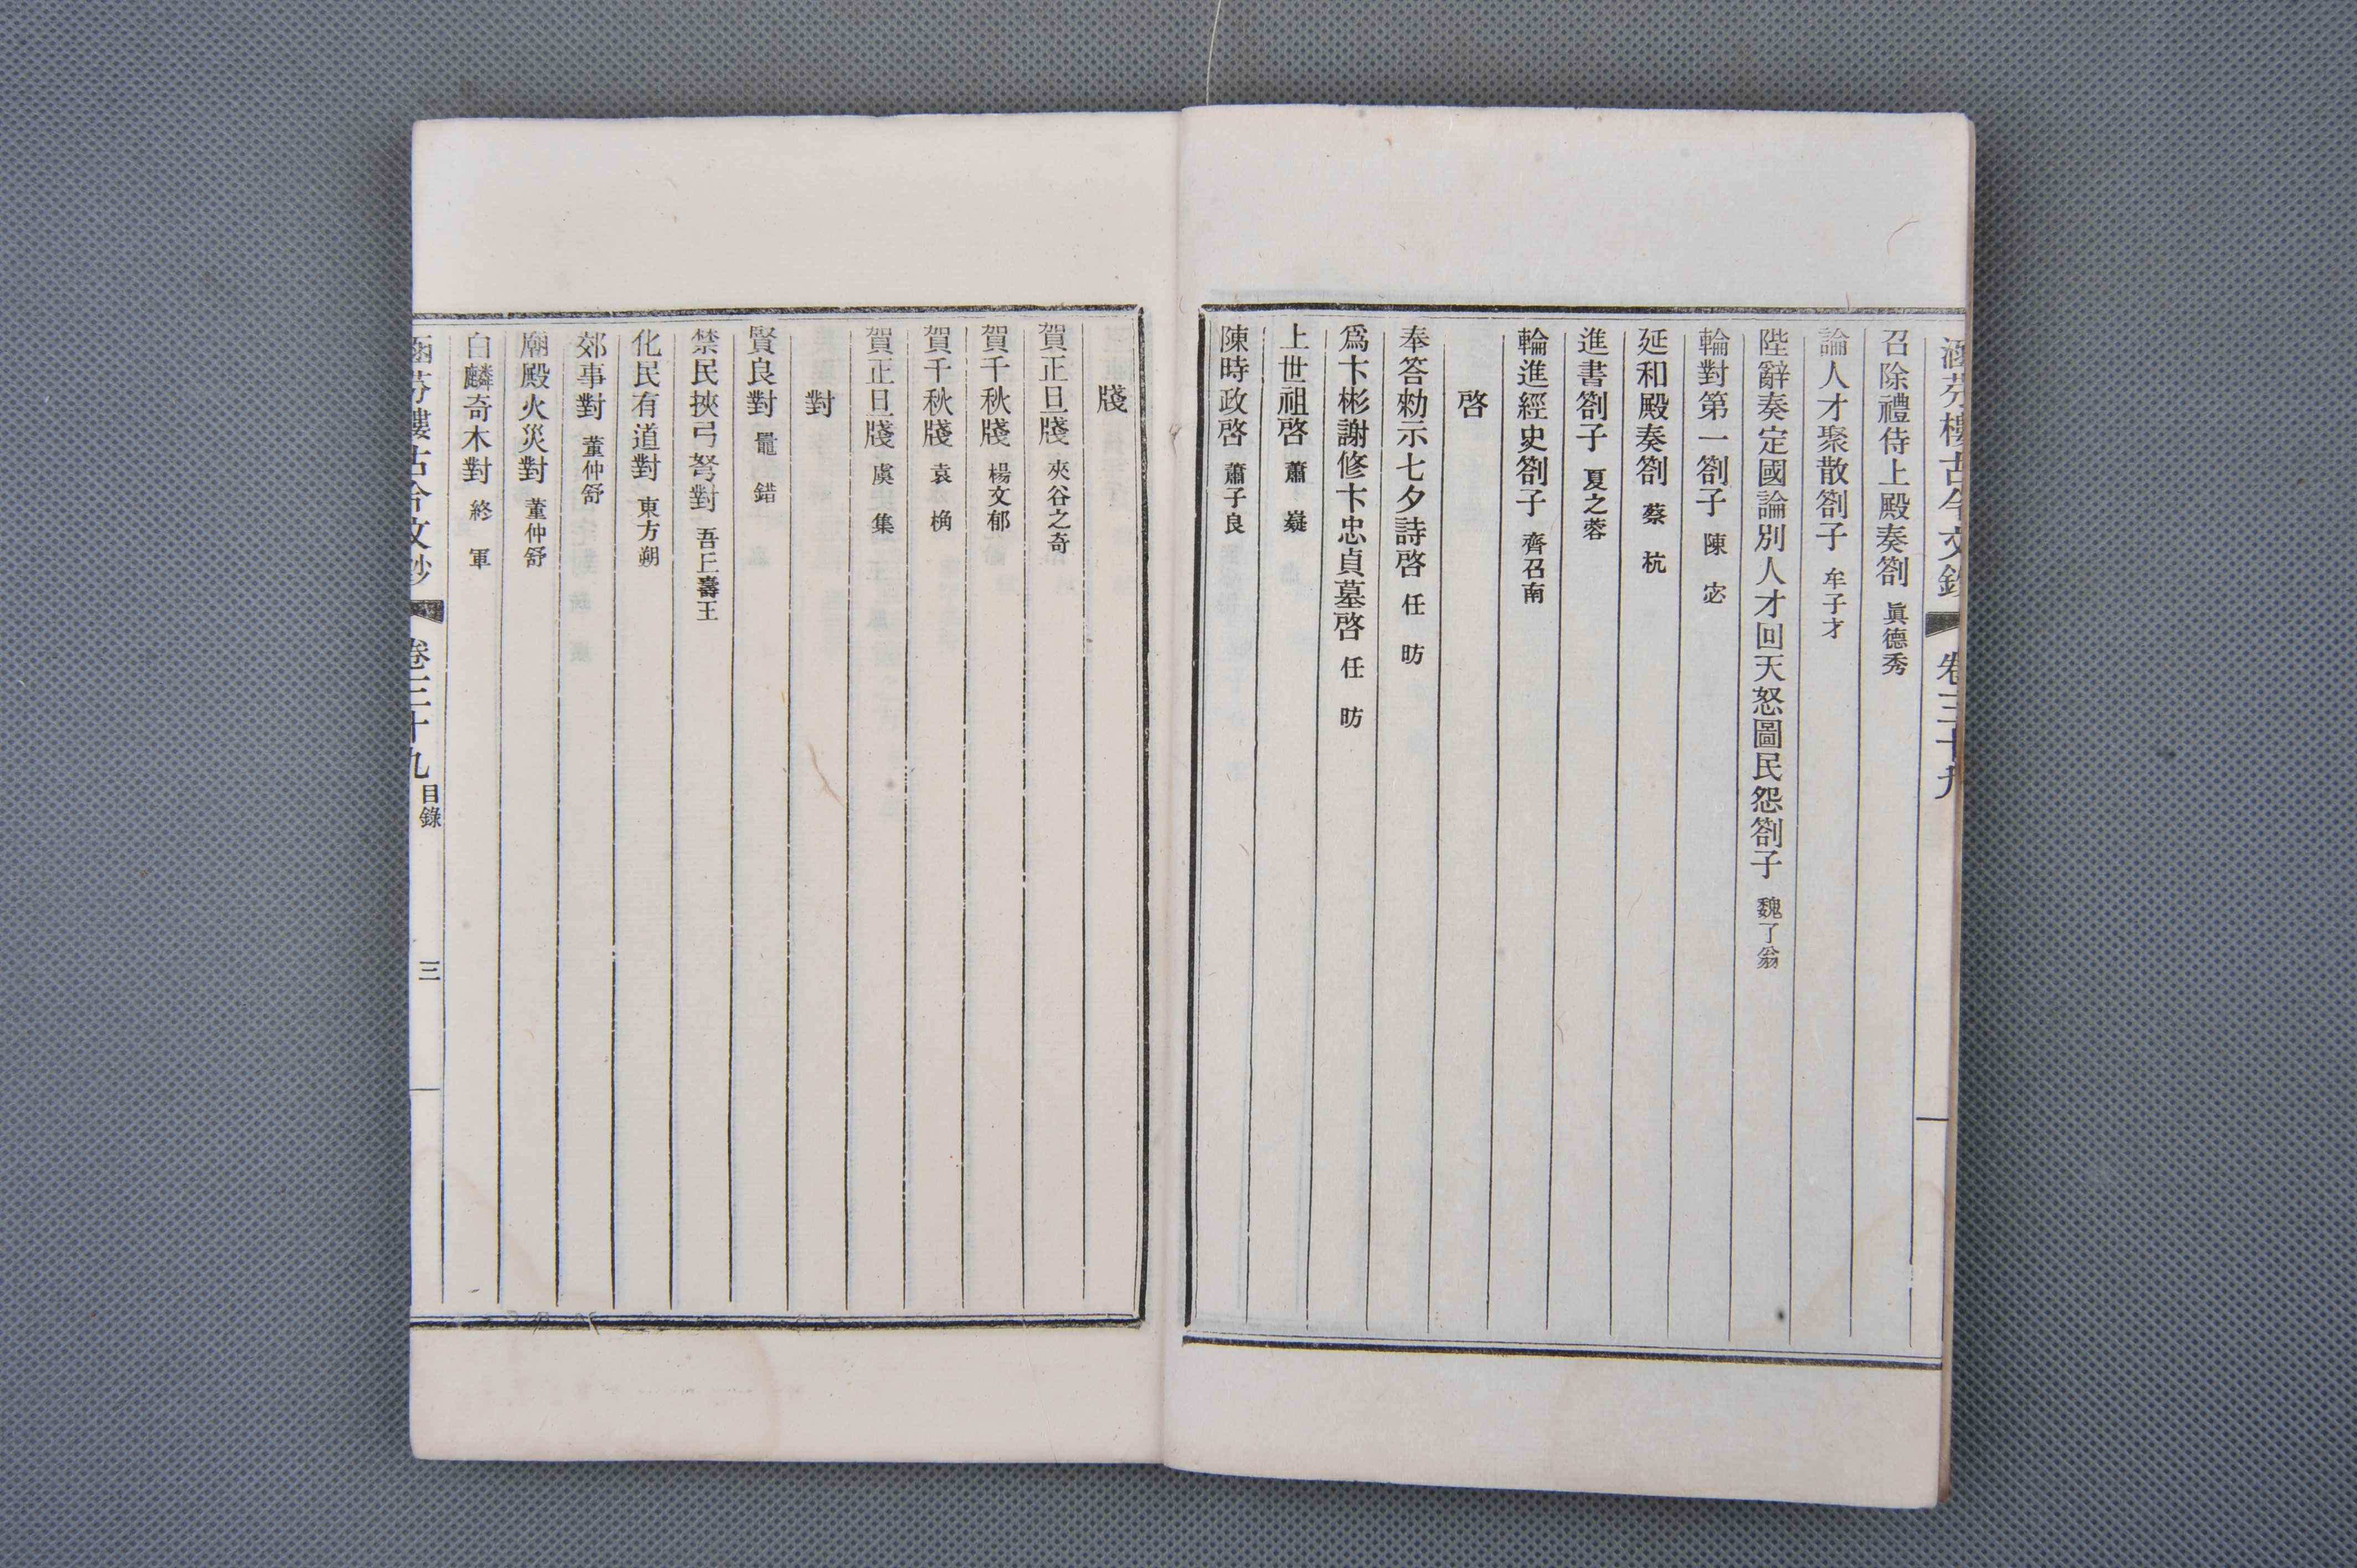 涵芬樓古今文鈔 卷三十九
召除禮侍上殿奏劄 眞德秀
論人才聚散劄子 牟子才
陛辭奏定國論別人才回天怒圖民怨劄子 魏了翁
輪對第一劄子 陳宓
延和殿奏劄 蔡杭
進書劄子 夏之蓉
輪進經史劄子 齊召南
啓
奉答勑示七夕詩啓 任昉
爲卞彬謝修卞忠貞墓啓 任昉
上世祖啓 蕭嶷
陳時政啓 蕭子良
牋
賀正旦牋 夾谷之奇
賀千秋牋 楊文郁
賀千秋牋 袁桷
賀正旦牋 虞集
對
賢良對 鼂錯
禁民挾弓弩對 吾丘壽王
化民有道對 東方朔
郊事對 董仲舒
廟殿火災對 董仲舒
白麟奇木對 終軍
涵芬樓古今文鈔 卷三十九 目錄 三